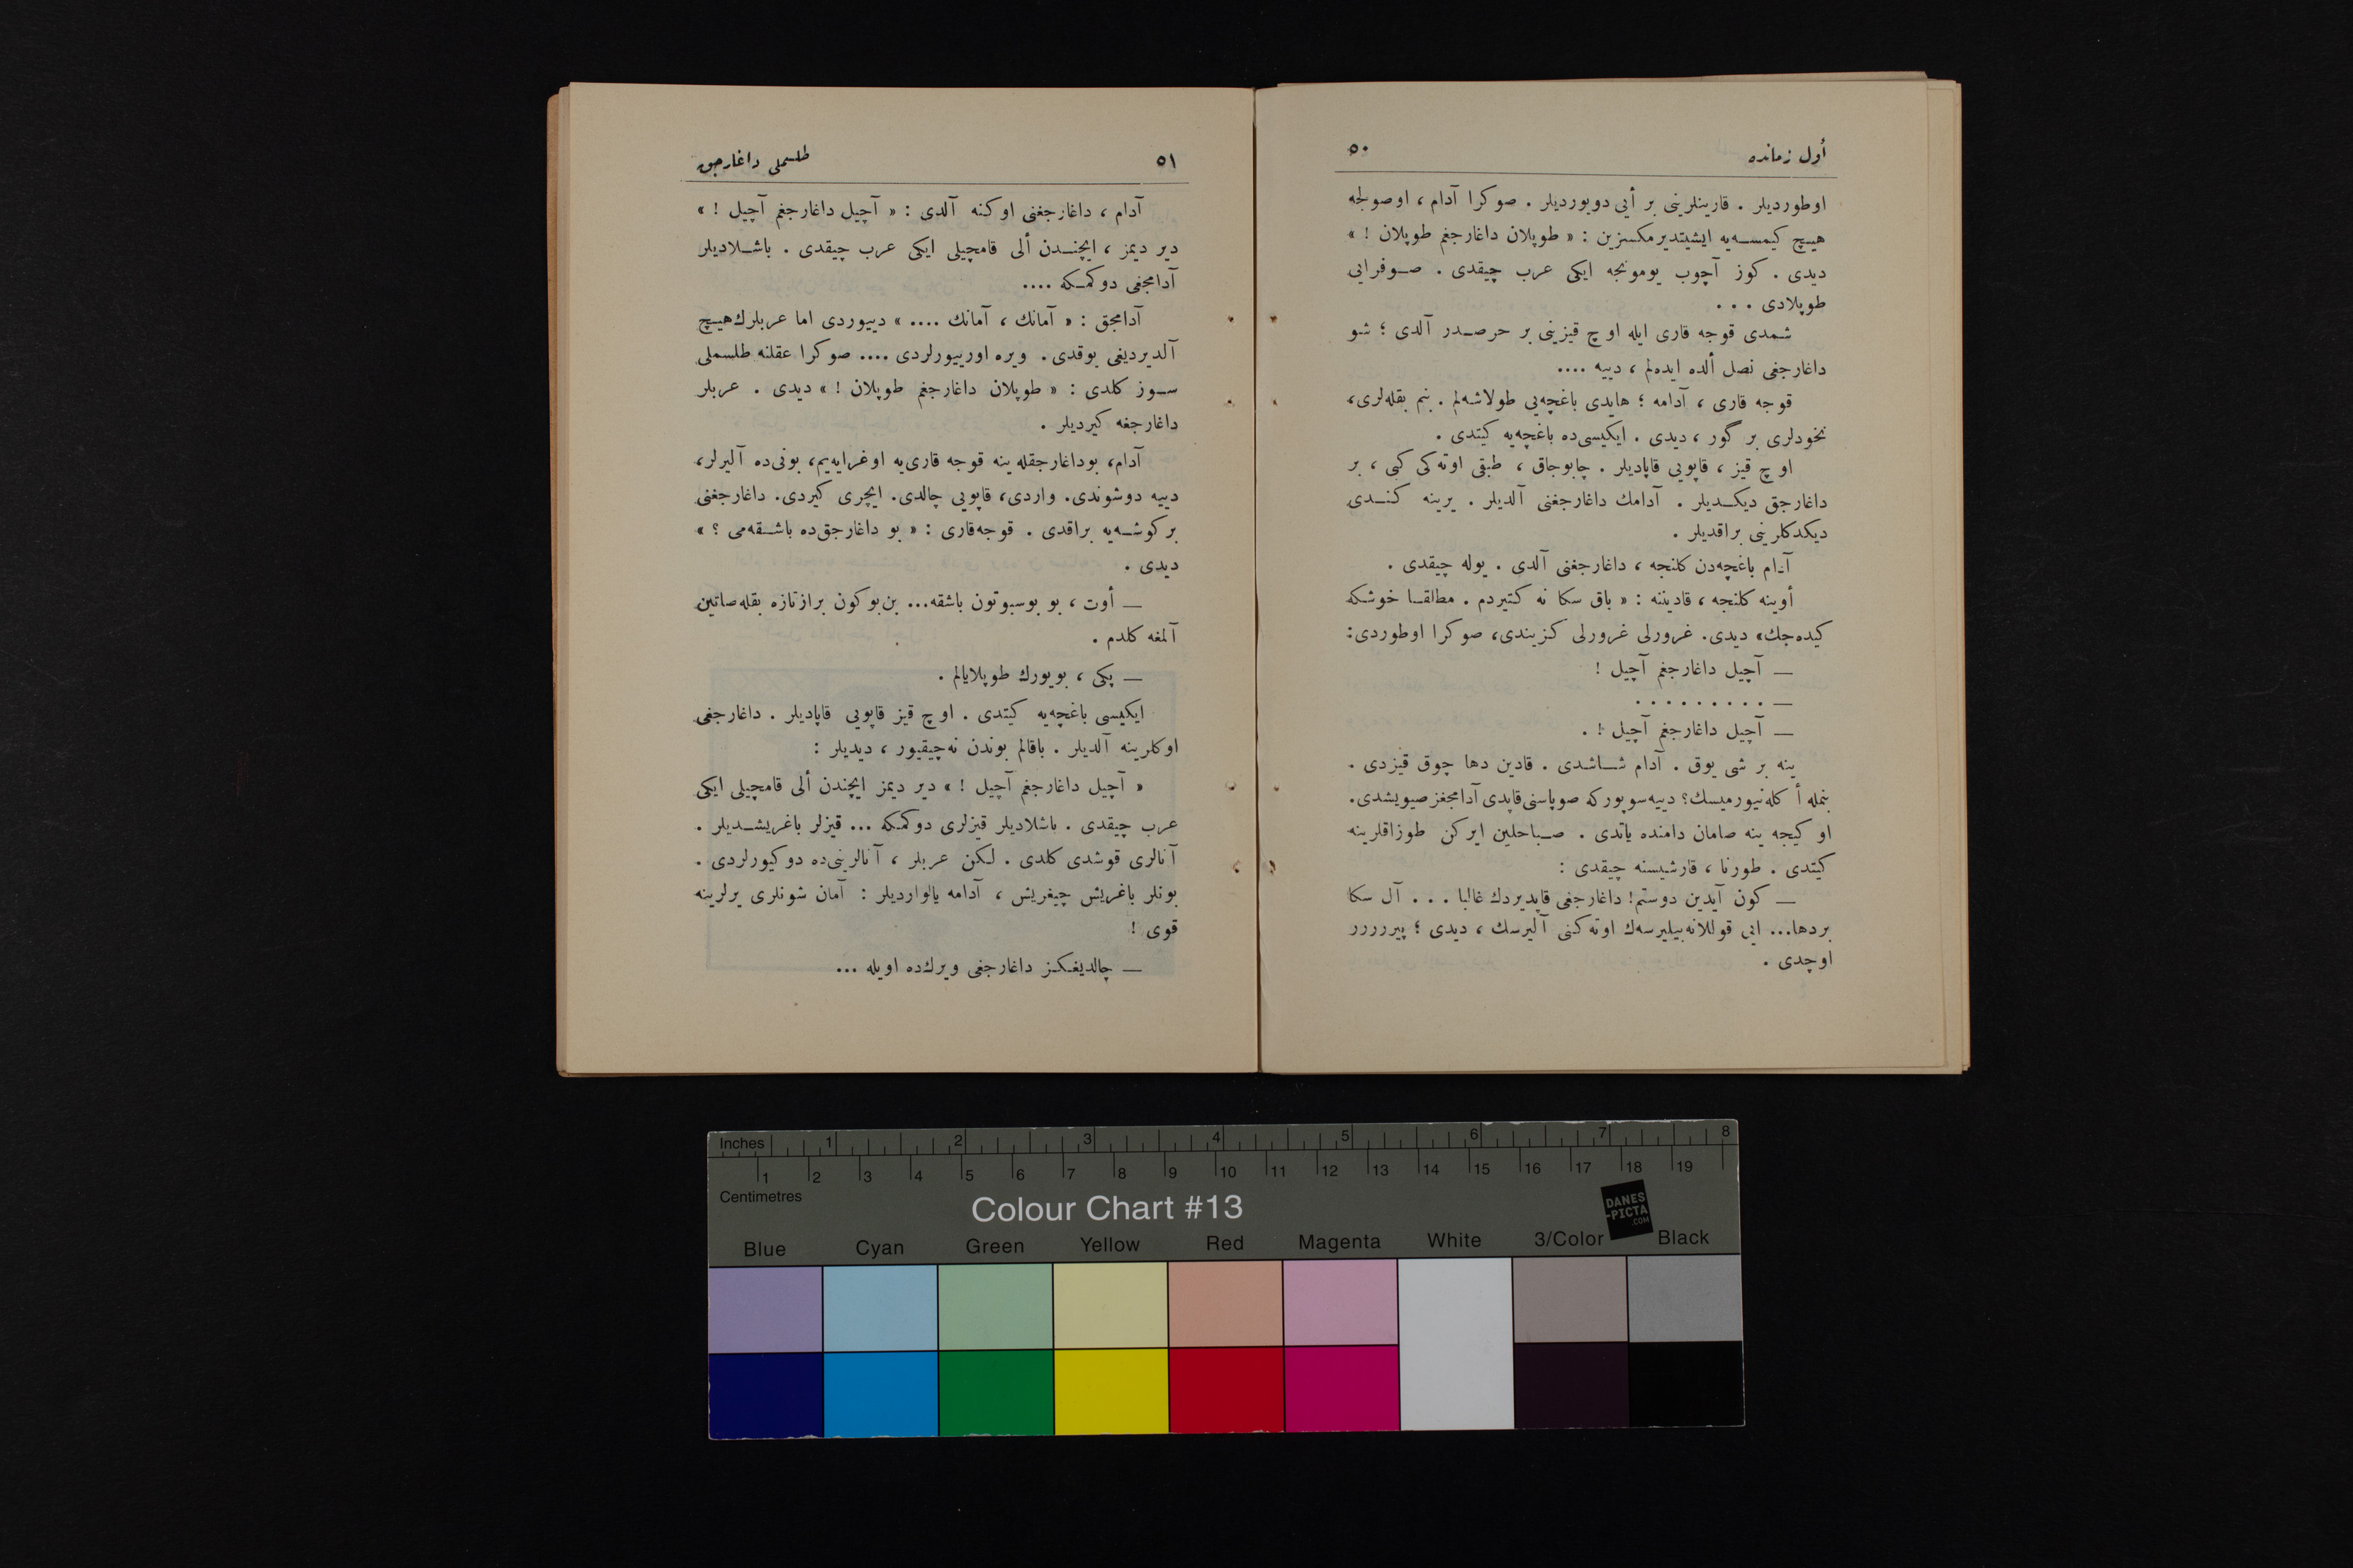 أول زمانده
٥٠
اوطورديلر . قارينلرينى بر أيى دويورديلر . صوكرا آدام ، اوصولجه
هيچ كيمسه‌يه ايشيتديرمكسزين : « طوپلان داغارجغم طوپلان ! »
ديدى . كوز آچوب يومونجه ايكى عرب چيقدى . صوفرايى
طوپلادى . . .
شمدى قوجه قارى ايله اوچ قيزينى بر حرصدر آلدى ؛ شو
داغارجغى نصل ألده ايده‌لم ، دييه ....
قوجه قارى ، آدامه ؛ هايدى باغچه‌يى طولاشه‌لم . بنم بقله‌لرى،
نخودلرى بر گور ، ديدى . ايكيسى‌ده باغچه‌يه كيتدى .
اوچ قيز ، قاپويى قاپاديلر . چابوجاق ، طبقى اوته‌كى كبى ، بر
داغارجق ديكديلر . آدامك داغارجغنى آلديلر . يرينه كندى
ديكدكلرينى براقديلر .
آدام باغچه‌دن كلنجه ، داغارجغنى آلدى . يوله چيقدى .
أوينه كلنجه ، قاديننه : « باق سكا نه كتيردم . مطلقا خوشكه
كيده‌جك» ديدى. غرورلى غرورلى كزيندى، صوكرا اوطوردى:
— آچيل داغارجغم آچيل !
— . . . . . . . . .
— آچيل داغارجغم آچيل ! .
ينه بر شى يوق . آدام شاشدى . قادين دها چوق قيزدى .
بنمله أكله‌نيورميسك؟ دييه سوپوركه صوپاسنى قاپدى آدامجغز صيويشدى.
او كيجه ينه صامان دامنده ياتدى . صباحلين ايركن طوزاقلرينه
كيتدى . طورنا ، قارشيسنه چيقدى :
— كون آيدين دوستم! داغارجغى قاپديردك غالبا . . . آل سكا
بردها... ايى قوللانه‌بيليرسه‌ك اوته‌كنى آليرسك ، ديدى ؛ پيررررر
اوچدى .
٥١
طلسملى داغارجق
آدام ، داغارجغنى اوكنه آلدى : « آچيل داغارجغم آچيل ! »
دير ديمز ، ايچندن ألى قامچيلى ايكى عرب چيقدى . باشلاديلر
آدامجغى دوكمكه ....
آدامجق : « آمانك ، آمانك .... » دييوردى اما عربلرك هيچ
آلديرديغى يوقدى. ويره اورييورلردى .... صوكرا عقلنه طلسملى
سوز كلدى : « طوپلان داغارجغم طوپلان ! » ديدى . عربلر
داغارجغه كيرديلر .
آدام، بوداغارجقله ينه قوجه قارى‌يه اوغرايه‌يم، بونى‌ده آليرلر،
دييه دوشوندى. واردى، قاپويى چالدى. ايچرى كيردى. داغارجغنى
بر كوشه‌يه براقدى . قوجه‌قارى : « بو داغارجق‌ده باشقه‌مى ؟ »
ديدى .
— أوت ، بو بوسبوتون باشقه... بن بوكون براز تازه بقله صاتين
آلمغه كلدم .
— پكى ، بويورك طوپلايالم .
ايكيسى باغچه‌يه كيتدى . اوچ قيز قاپويى قاپاديلر . داغارجغى
اوكلرينه آلديلر . باقالم بوندن نه‌چيقيور ، ديديلر :
« آچيل داغارجغم آچيل ! » دير ديمز ايچندن ألى قامچيلى ايكى
عرب چيقدى . باشلاديلر قيزلرى دوكمكه ... قيزلر باغريشديلر .
آنالرى قوشدى كلدى . لكن عربلر ، آنالرينى‌ده دوكيورلردى .
بونلر باغريش چيغريش ، آدامه يالوارديلر : آمان شونلرى يرلرينه
قوى !
— چالديغكز داغارجغى ويرك‌ده اويله ...
Inches 1 2 3 4 5 6 7 8
1 2 3 4 5 6 7 8 9 10 11 12 13 14 15 16 17 18 19
Centimetres
Colour Chart #13
DANES
-PICTA
.COM
Blue Cyan Green Yellow Red Magenta White 3/Color Black